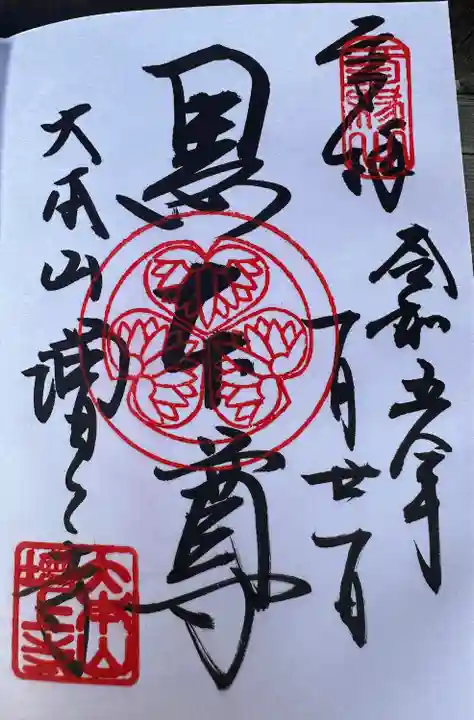 奉拝
令和五年
一月廿一日
黒本尊
大本山 増上寺
大本山
増上寺